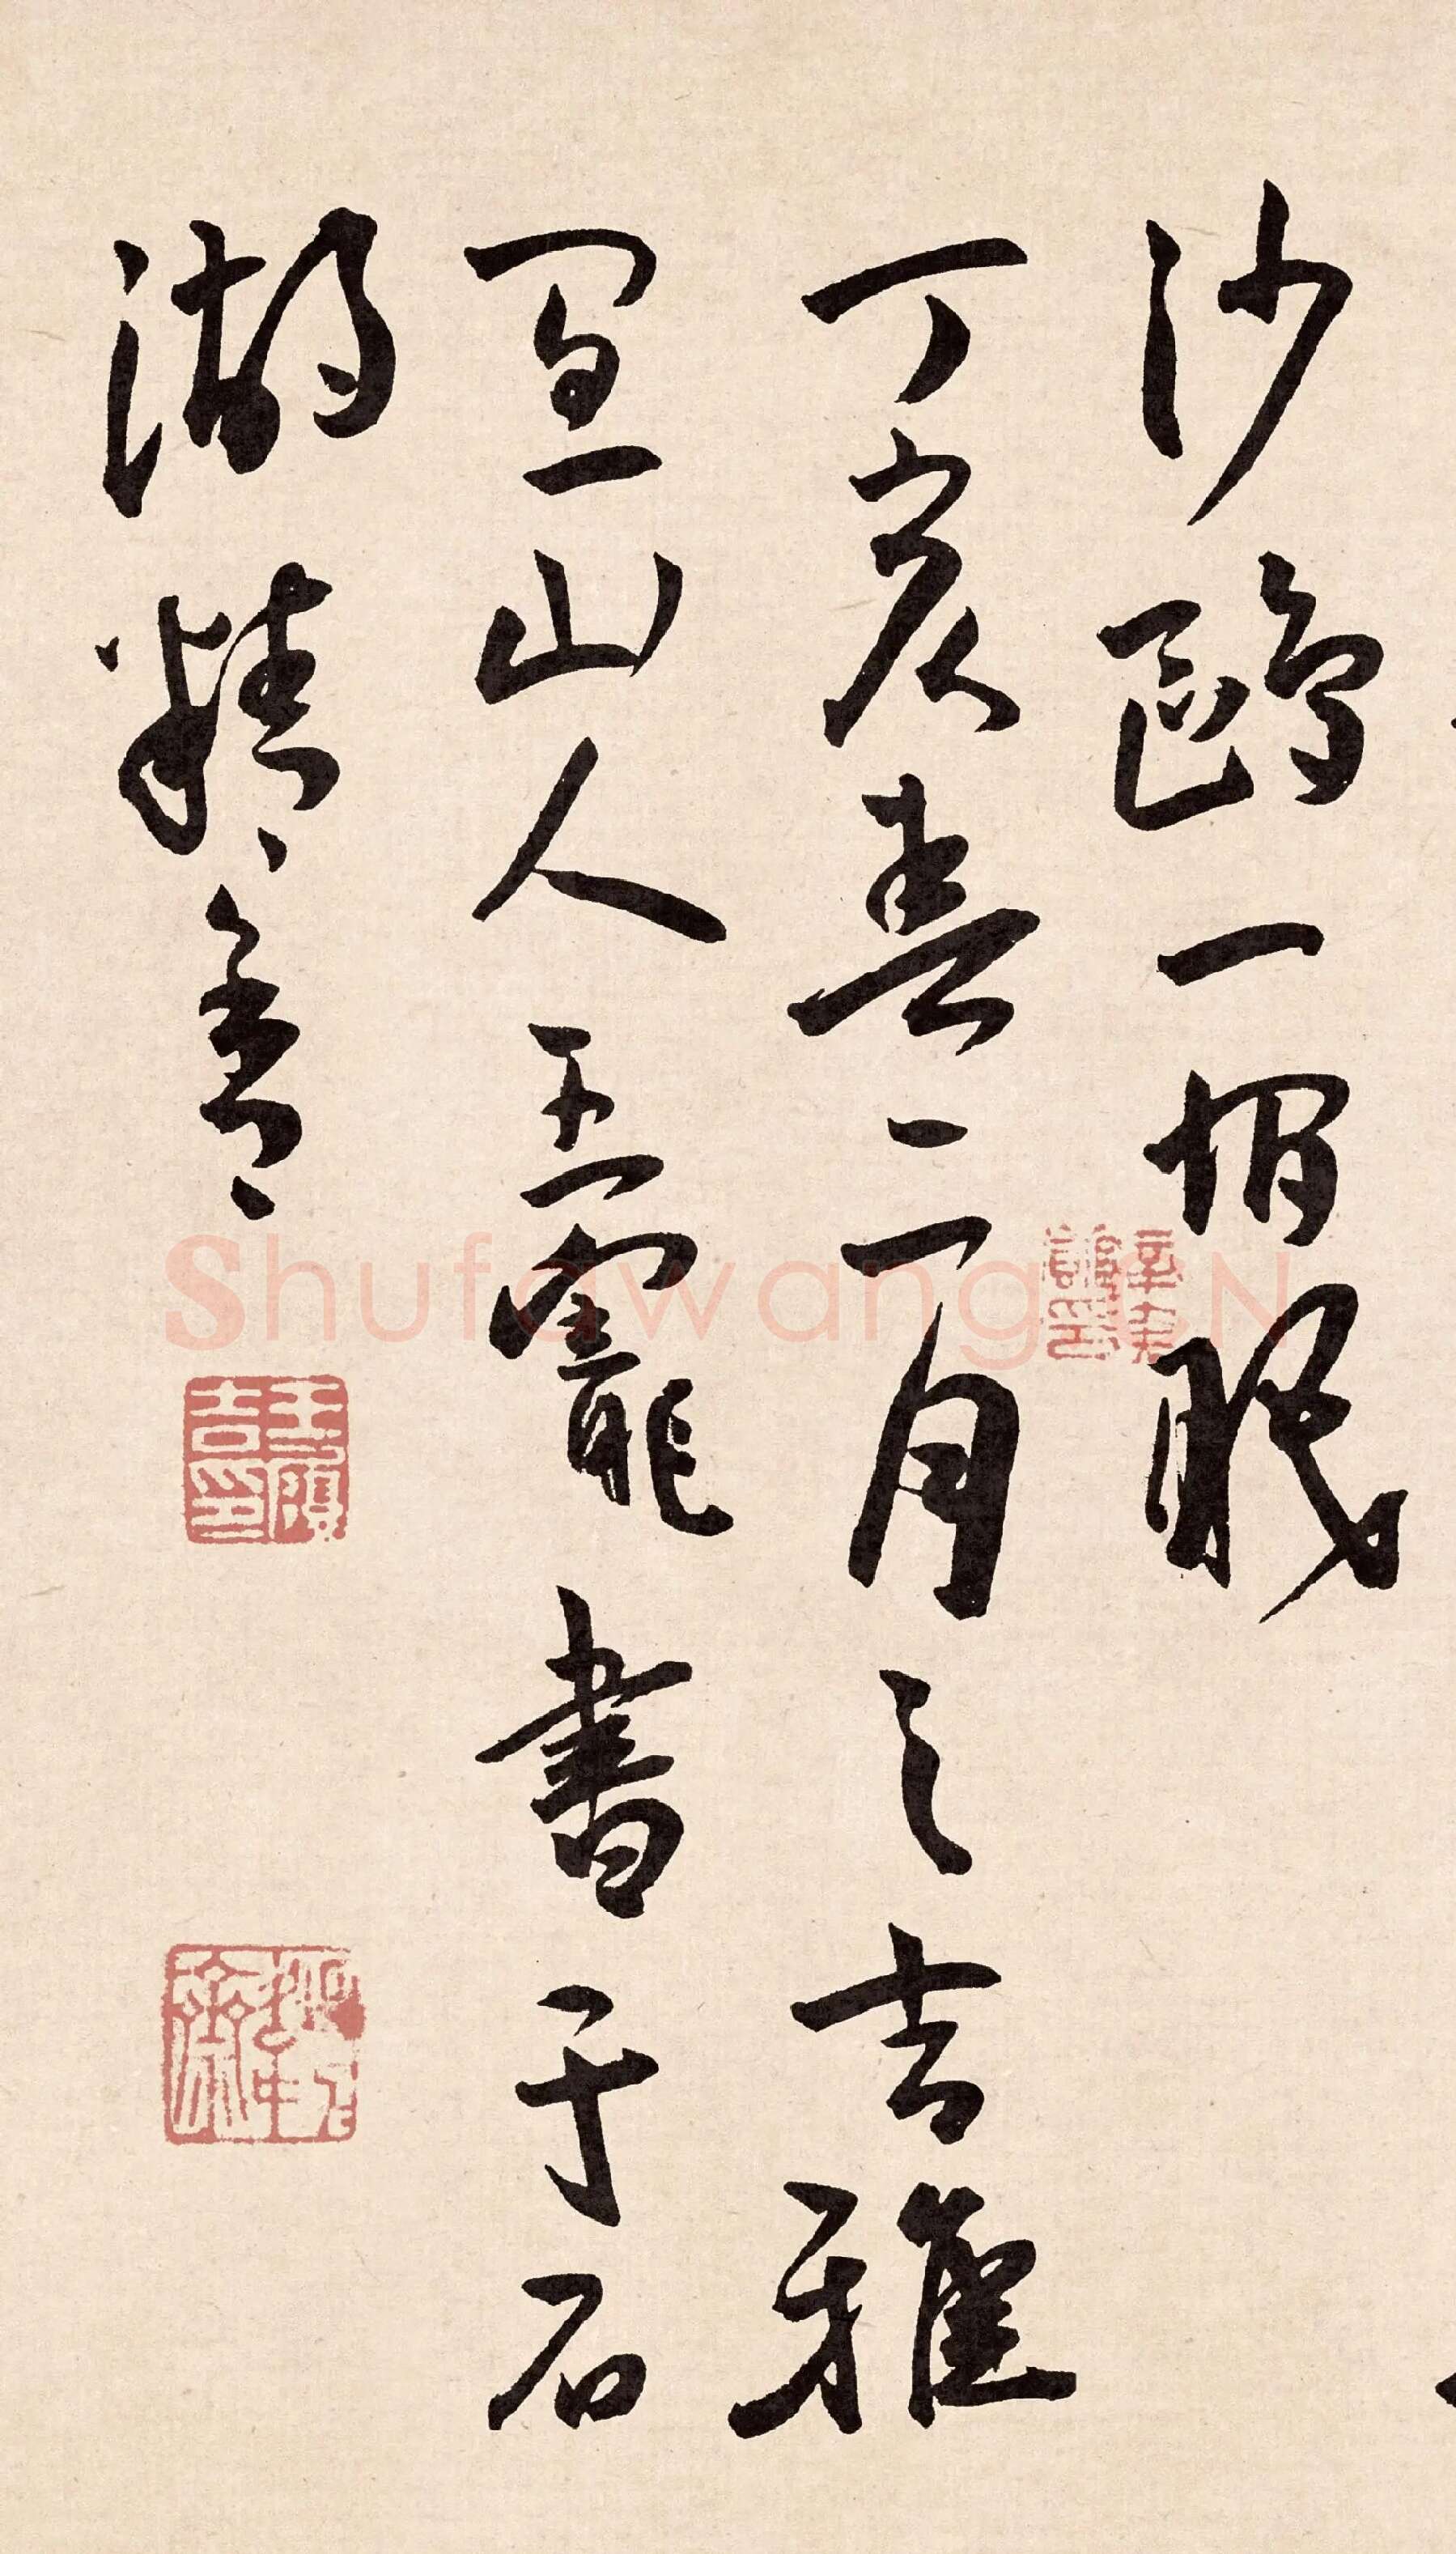 沙鷗一眠
丁亥春二月之吉雅
宜山人王寵書于石
湖精舍
王履吉印
Shufawang.CN